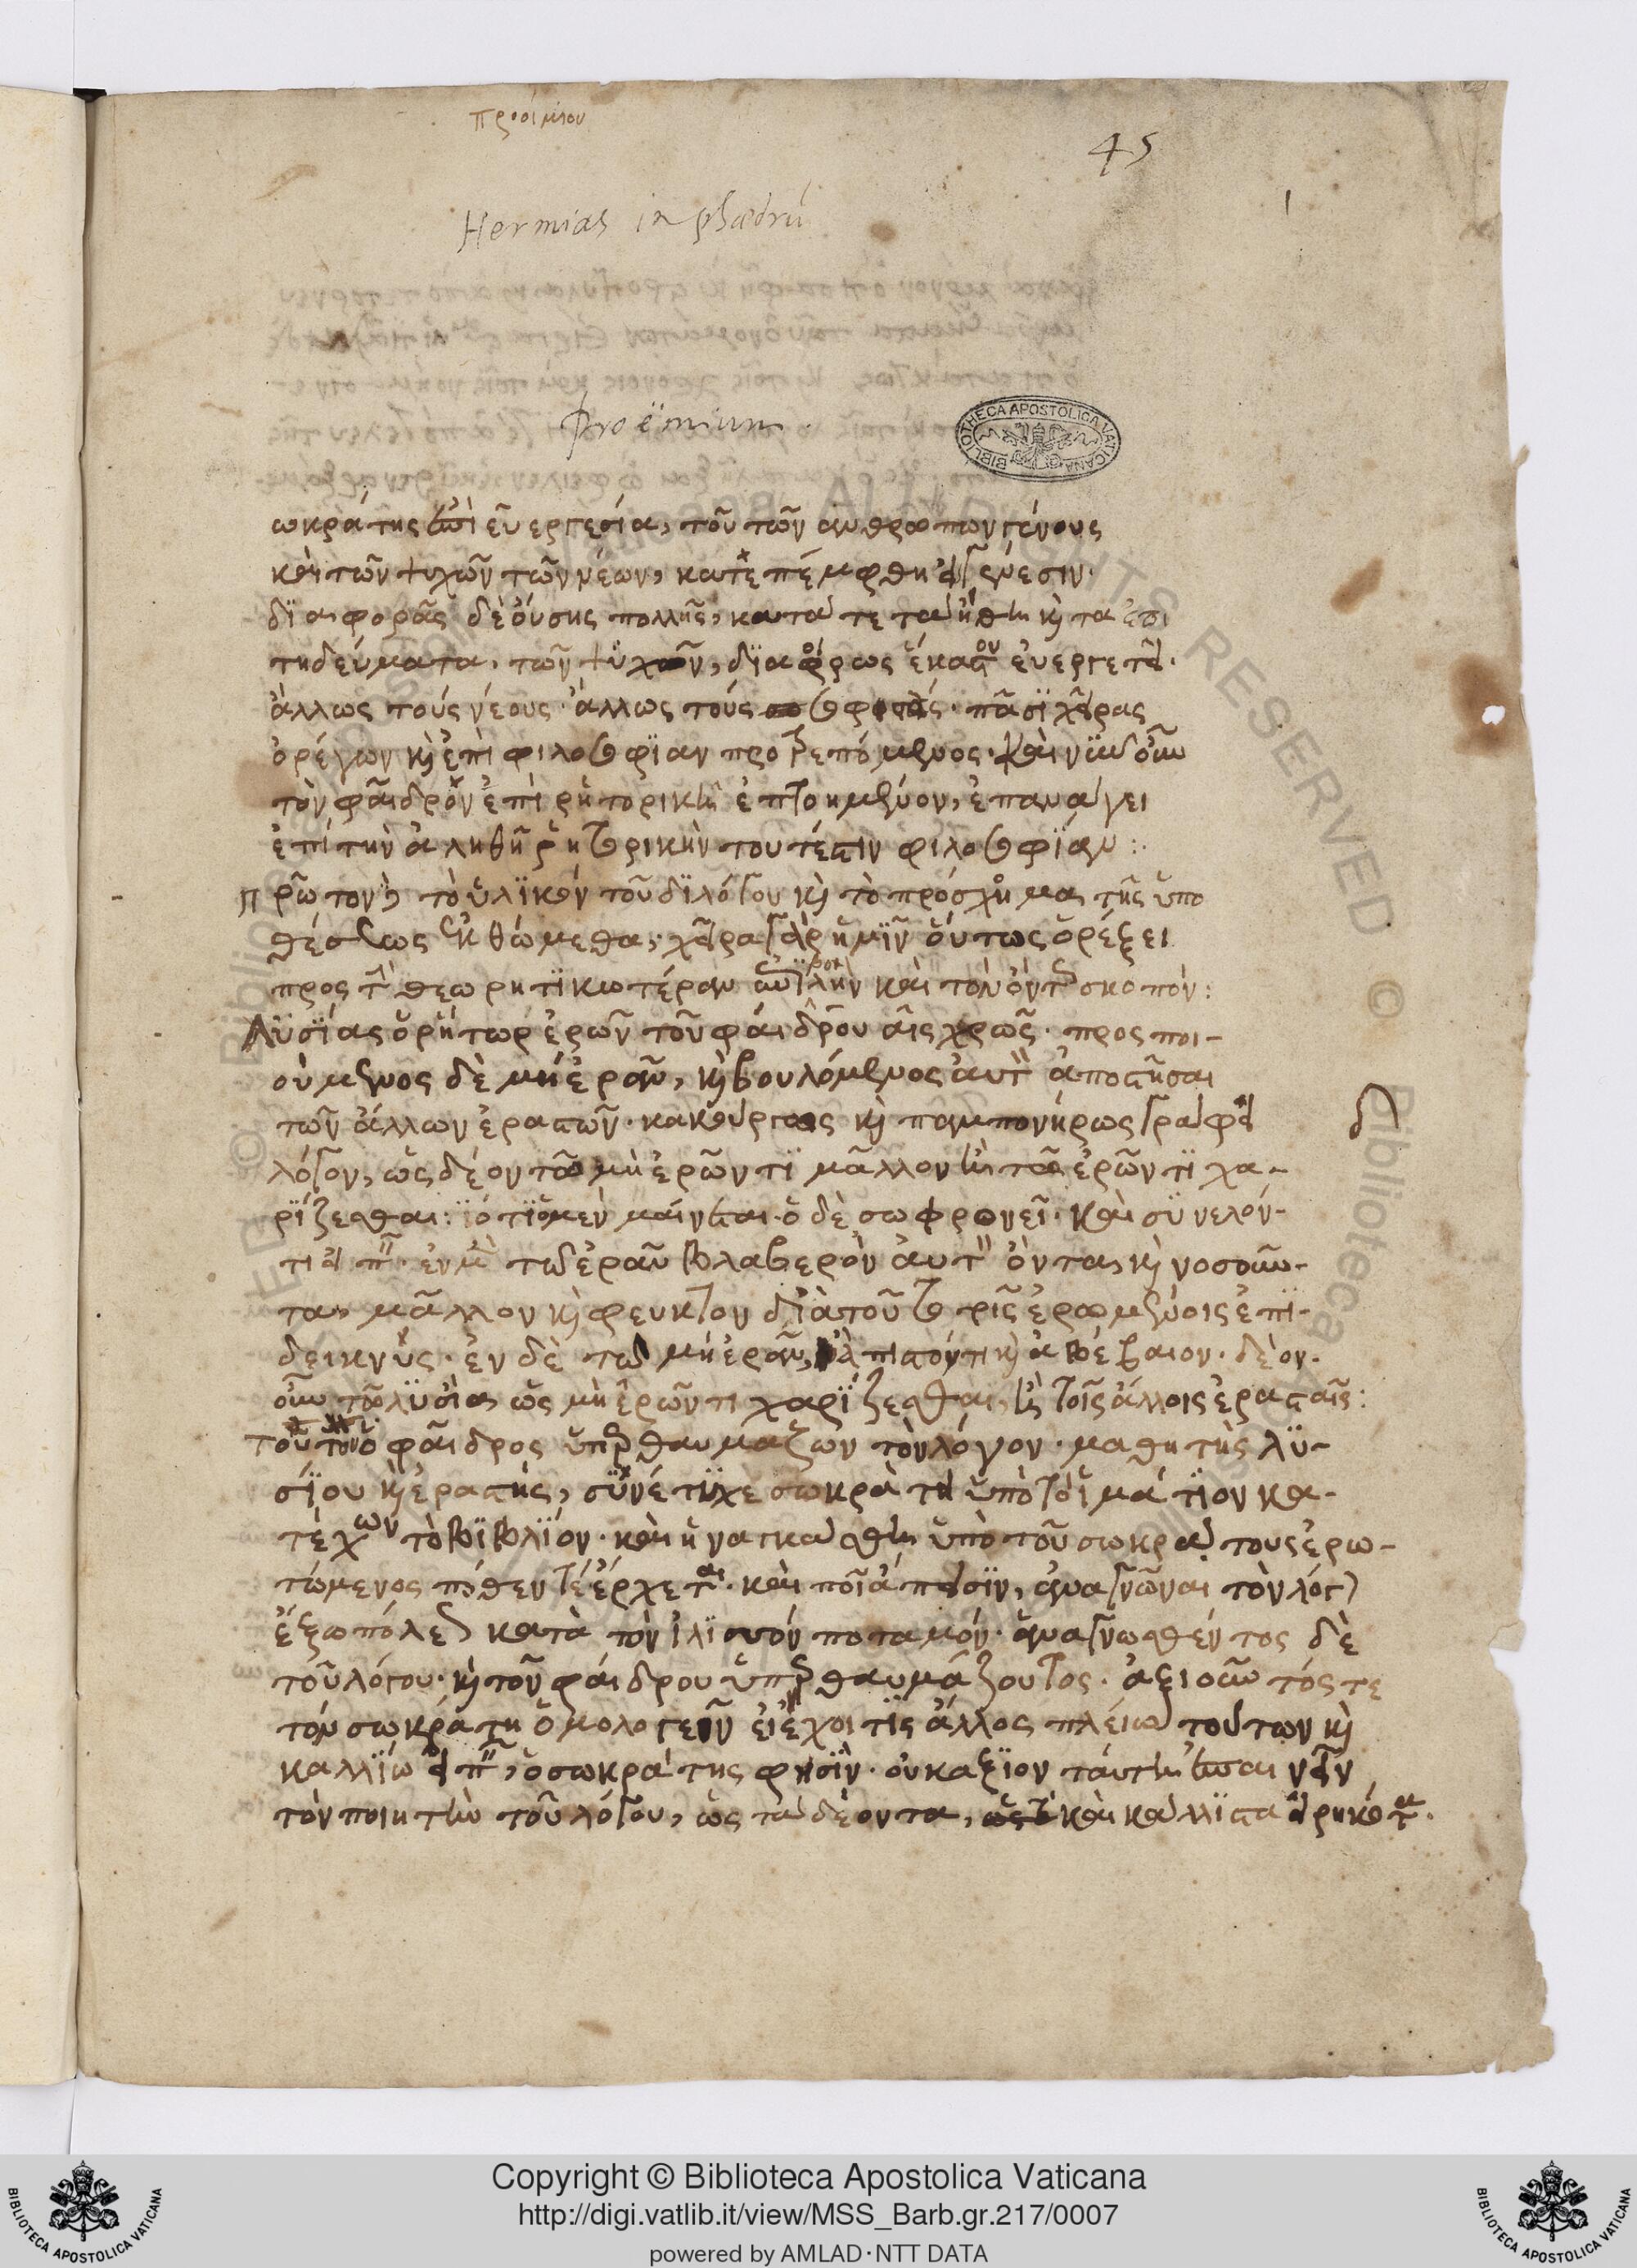 προοίμιον
45
Hermias in phædrū
1
Proëmium.
BIBLIOTHECA APOSTOLICA VATICANA
ωκράτης ἐπὶ εὐεργεσία, τοῦ τῶν ἀνθρώπων γένους
καὶ τῶν ψυχῶν τῶν νέων, κατεπέμφθη εἰς γένεσιν·
διαφορᾶς δὲ οὔσης πολλῆς, κατά τε τὰ ἤθη κ̀ τὰ ἐπι
τηδεύματα τῶν ψυχῶν, διαφόρως ἕκαστον εὐεργετεῖ·
ἄλλως τοὺς νέους· ἄλλως τοὺς σοφιστάς· πᾶσι χεῖρας
ὀρέγων κ̀ ἐπὶ φιλοσοφίαν προτρεπόμενος· καὶ νῦν οὖν
τὸν φαῖδρον ἐπὶ ῥητορικῇ ἐπτοημένον, ἐπανάγει
ἐπὶ τὴν ἀληθῆ ῥητορικὴν τουτέστιν φιλοσοφίαν :.
πρῶτον τὸ ὑλικὸν τοῦ διλόγου κ̀ τὸ πρόσχημα τῆς ὑπο
θέσεως ἐκθώμεθα, χεῖρα γὰρ ἡμῖν οὕτως ὀρέξει
προς τ θεωρητικωτέραν καὶ τὸν ὄντως σκοπόν :
Λυσίας ὁ ῥήτωρ ἐρῶν τοῦ φαίδρου αἰσχρῶς· προσποι-
ούμενος δὲ μὴ ἐρᾶν, κ̀ βουλόμενος αὐτὸν ἀποστῆσαι
τῶν ἄλλων ἐραστῶν· κακούργως κ̀ παμπονήρως γράφει
λόγον, ὡς δέον τῶ μὴ ἐρῶντι μᾶλλον ἢ τῶ ἐρῶντι χα-
ρίζεσθαι: ὅτι ὁ μὲν μαίνεται· ὁ δὲ σωφρονεῖ· καὶ συνελόν-
τι εἰπεῖν· ἐν μὲν τῶ ἐρᾶν βλαβερὸν αὐτὸν ὄντα, κ̀ νοσοῦν-
τα, μᾶλλον κ̀ φευκτὸν διὰ τοῦτο τοῖς ἐρωμένοις ἐπι-
δεικνύς· ἐν δὲ τῶ μὴ ἐρᾶν, κ̀ ἀβέβαιον· δέον·
οὖν τῶ λυσία ὡς μὴ ἐρῶντι χαρίζεσθαι, ἢ τοῖς ἄλλοις ἐρασταῖς:
τοῦτον ὁ φαῖδρος ὑπερθαυμάζων τὸν λόγον· μαθητὴς λυ-
σίου κ̀ ἐραστής, συνέτυχε σωκράτει ὑπὸ τὸ ἱμάτιον κα-
τέχων τὸ βιβλίον· καὶ ἠναγκάσθη ὑπὸ τοῦ σωκράτους ἐρω-
τώμενος πόθεν τὲ ἔρχεται· καὶ ποῖ ἄπεισιν, ἀναγνῶναι τὸν λόγον
ἔξω πόλεως κατὰ τὸν ἰλισσὸν ποταμόν· ἀναγνωσθέντος δὲ
τοῦ λόγου· κ̀ τοῦ φαίδρου ὑπερθαυμάζοντος· ἀξιοῦντός τε
τὸν σωκράτη ὁμολογεῖν εἰ ἔχοι τις ἄλλος πλείω τούτων κ̀
καλλίω εἰπεῖν, ὁ σωκράτης φησὶν· οὐκ ἄξιον ταύτη ἐπαινεῖν
τὸν ποιητὴν τοῦ λόγου, ὡς τὰ δέοντα, καὶ κάλλιστα εἰρηκότα.
Copyright © Biblioteca Apostolica Vaticana
http://digi.vatlib.it/view/MSS_Barb.gr.217/0007
powered by AMLAD·NTT DATA
BIBLIOTECA APOSTOLICA VATICANA
BIBLIOTECA APOSTOLICA VATICANA